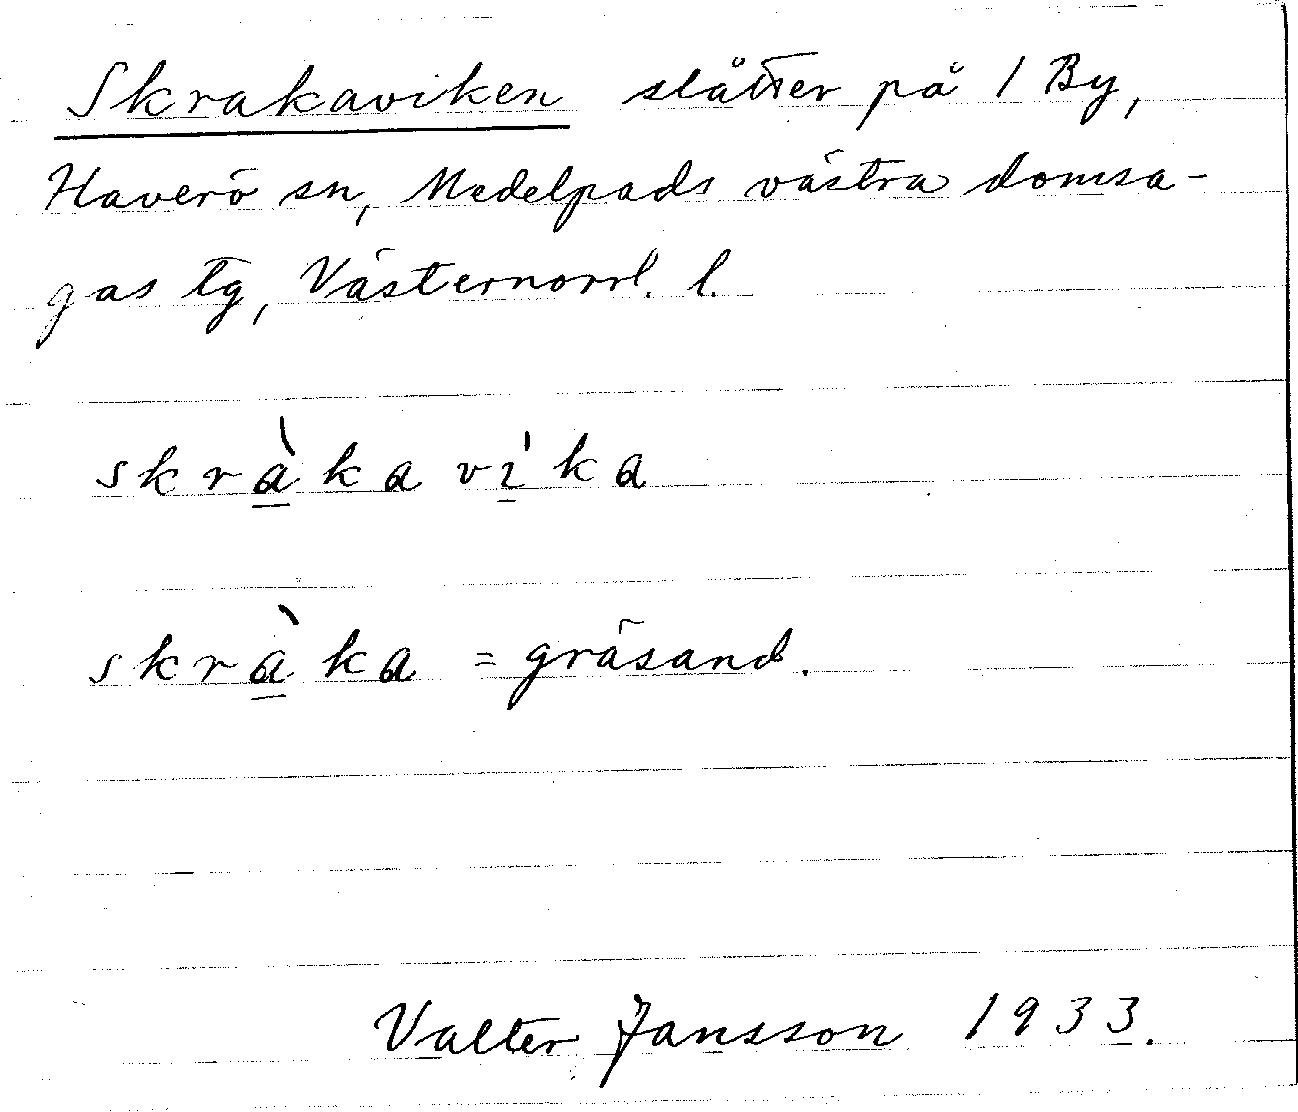 Skrakaviken slåtter på 1 By,
Haverö sn, Medelpads västra domsa-
gas tg, Västernorrl. l.
skràka víka
skràka = gräsand.
Valter Jansson 1933.